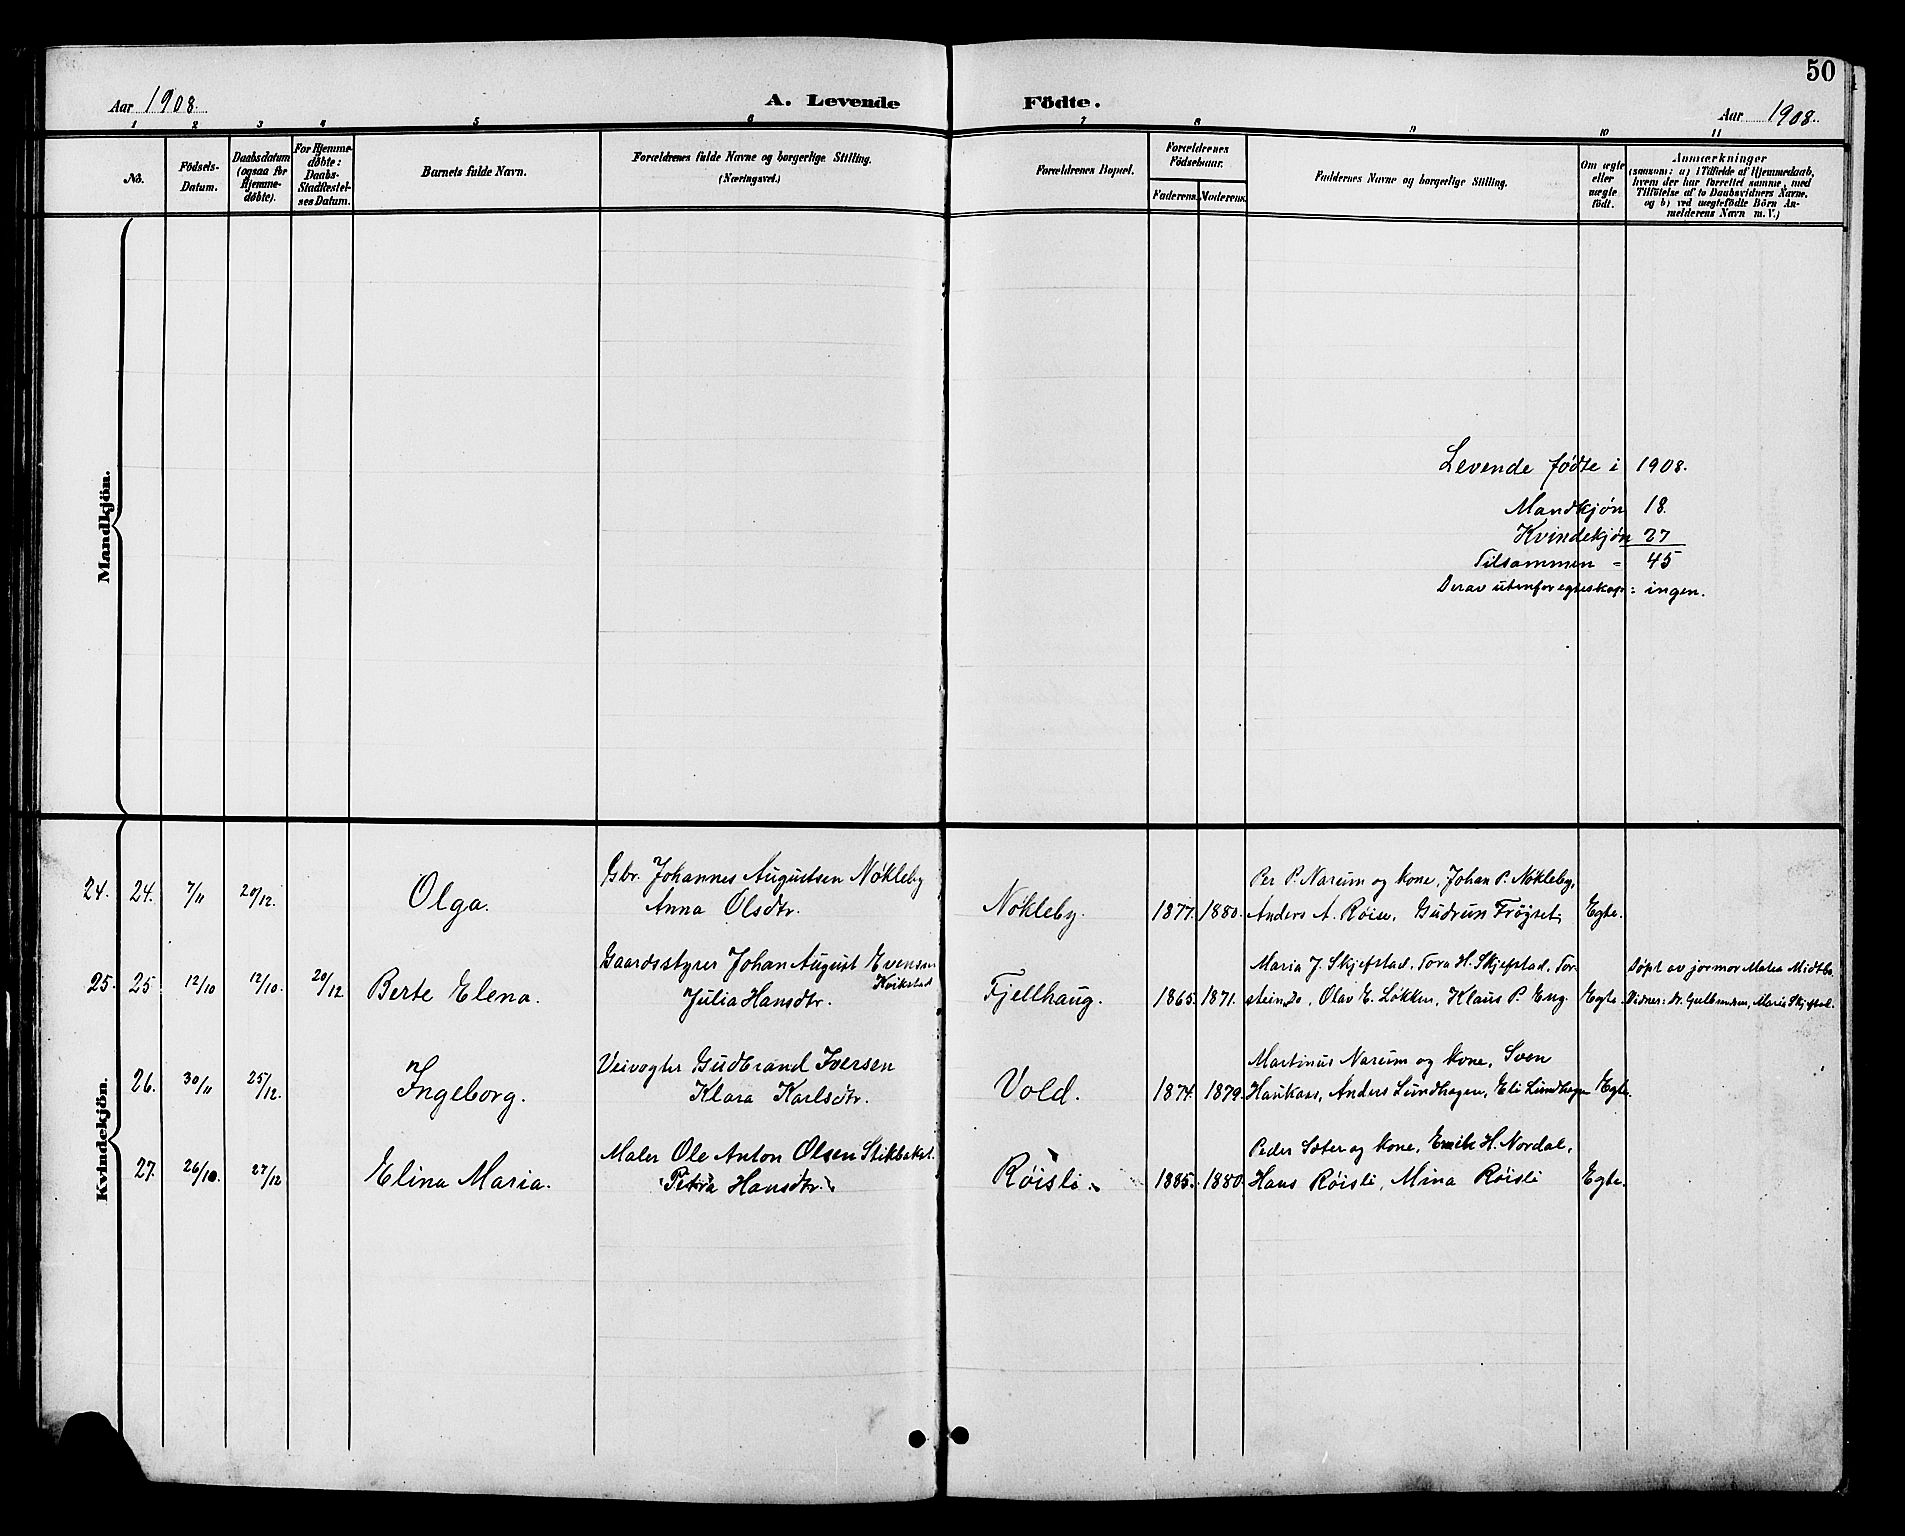 50
Aar 1908.
A. Levende Födte.
Aar 1908.
1 2 3 4 5 6 7 8 9 10 11
No.
Födsels-Datum.
Daabsdatum (ogsaa for Hjemmedøbte).
For Hjemmedøbte: Daabs-Stadfæstelses Datum.
Barnets fulde Navn.
Forældrenes fulde Navne og borgerlige Stilling.
(Næringsvei.)
Forældrenes Bopæl.
Forældrenes Födselsaar.
Faderens. Moderens.
Faddernes Navne og borgerlige Stilling.
Om ægte eller uægte födt.
Anmærkninger
(saasom: a) i Tilfælde af Hjemmedaab,
hvem der har forrettet samme, med
Tilföielse af to Daabsvidners Navne,
og b) ved uægtefödte Börn An-
melderens Navn m. V.)
Mandkjön.
Levende fødte i 1908.
Mandkjøn 18.
Kvindekjøn 27
Tilsammen = 45
Derav utenfor egteskap: ingen.
Kvindekjön.
24. 24. 7/11 20/12. Olga.
Gbr. Johannes Augustsen Nøkleby
Anna Olsdtr.
Nøkleby. 1877. 1880.
Per P. Narum og kone, Johan P. Nøkleby,
Anders A. Røise, Gudrun Frøyset,
Egte.
25. 25 12/10 12/10. 20/12 Berte Elena.
Gaardsstyrer Johan August Evensen
Kvikstad
Julia Hansdtr.
Fjellhaug. 1865. 1871.
Maria J. Skjefstad, Tora H. Skjefstad, Tor-
stein Do, Olav E. Løkken, Klaus P. Eng.
Egte.
Døpt av jormor Matea Midtbø
Vidner: Dr. Gulbrandsen, Maria Skjefstad.
26. 30/11 25/12. Ingeborg.
Veivogter Gudbrand Iversen
Klara Karlsdtr.
Vold. 1874. 1879.
Martinus Narum og kone, Sven
Haukaas, Anders Lundhagen, Eli Lundhagen
Egte.
27. 26/10. 27/12 Elina Maria.
Maler Ole Anton Olsen Stikbakel.
Petra Hansdtr.
Røisli. 1885. 1880
Peder Sæter og kone, Emile H. Nordal,
Hans Røisli, Mina Røisli
Egte.